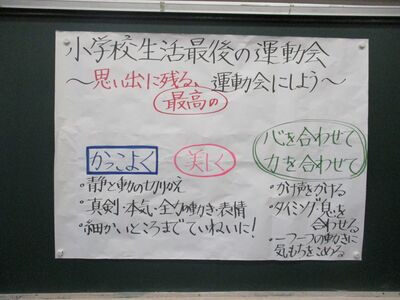 小学校生活最後の運動会
〜思い出に残る、運動会にしよう〜
最高の
かっこよく
美しく
心を合わせて
力を合わせて
・静と動の切りかえ
・真剣・本気・全力の動き・表情
・細かいところまでていねいに!
・かけ声をかける
・タイミング、息を
合わせる
・一つ一つの動きに
気もちをこめる